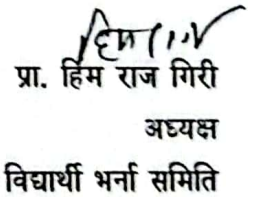 प्रा. हिम राज गिरी
अध्यक्ष
विद्यार्थी भर्ना समिति